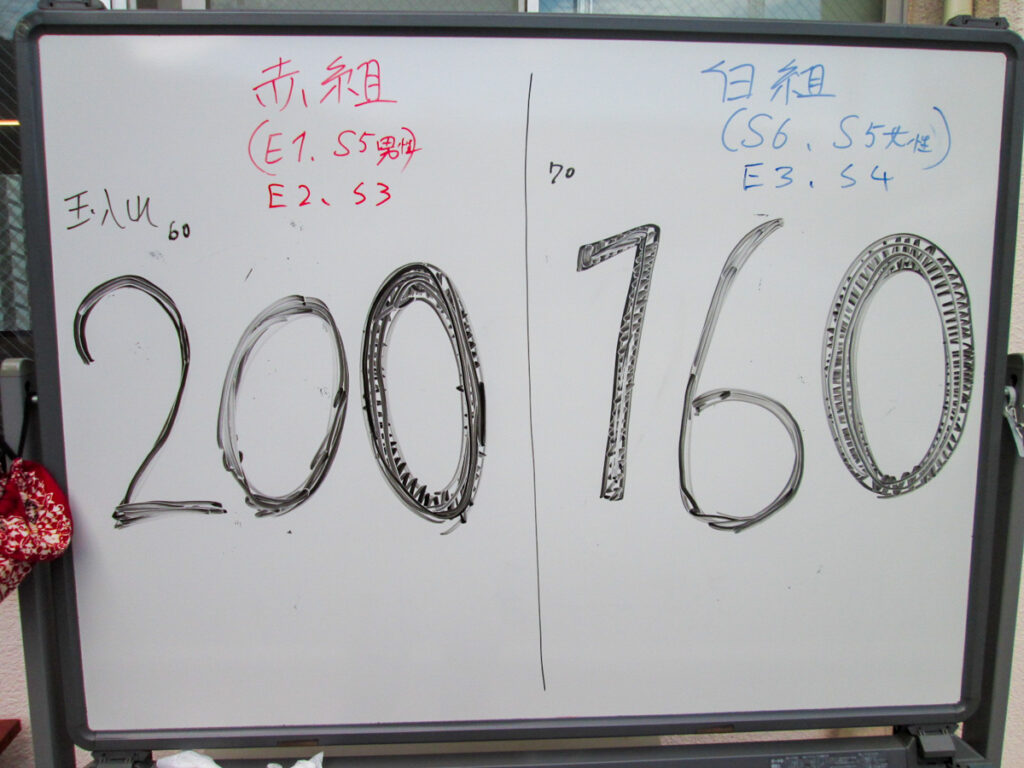 赤組
(E1、S5男性)
E2、S3
玉入れ 60
200
白組
(S6、S5女性)
E3、S4
70
160